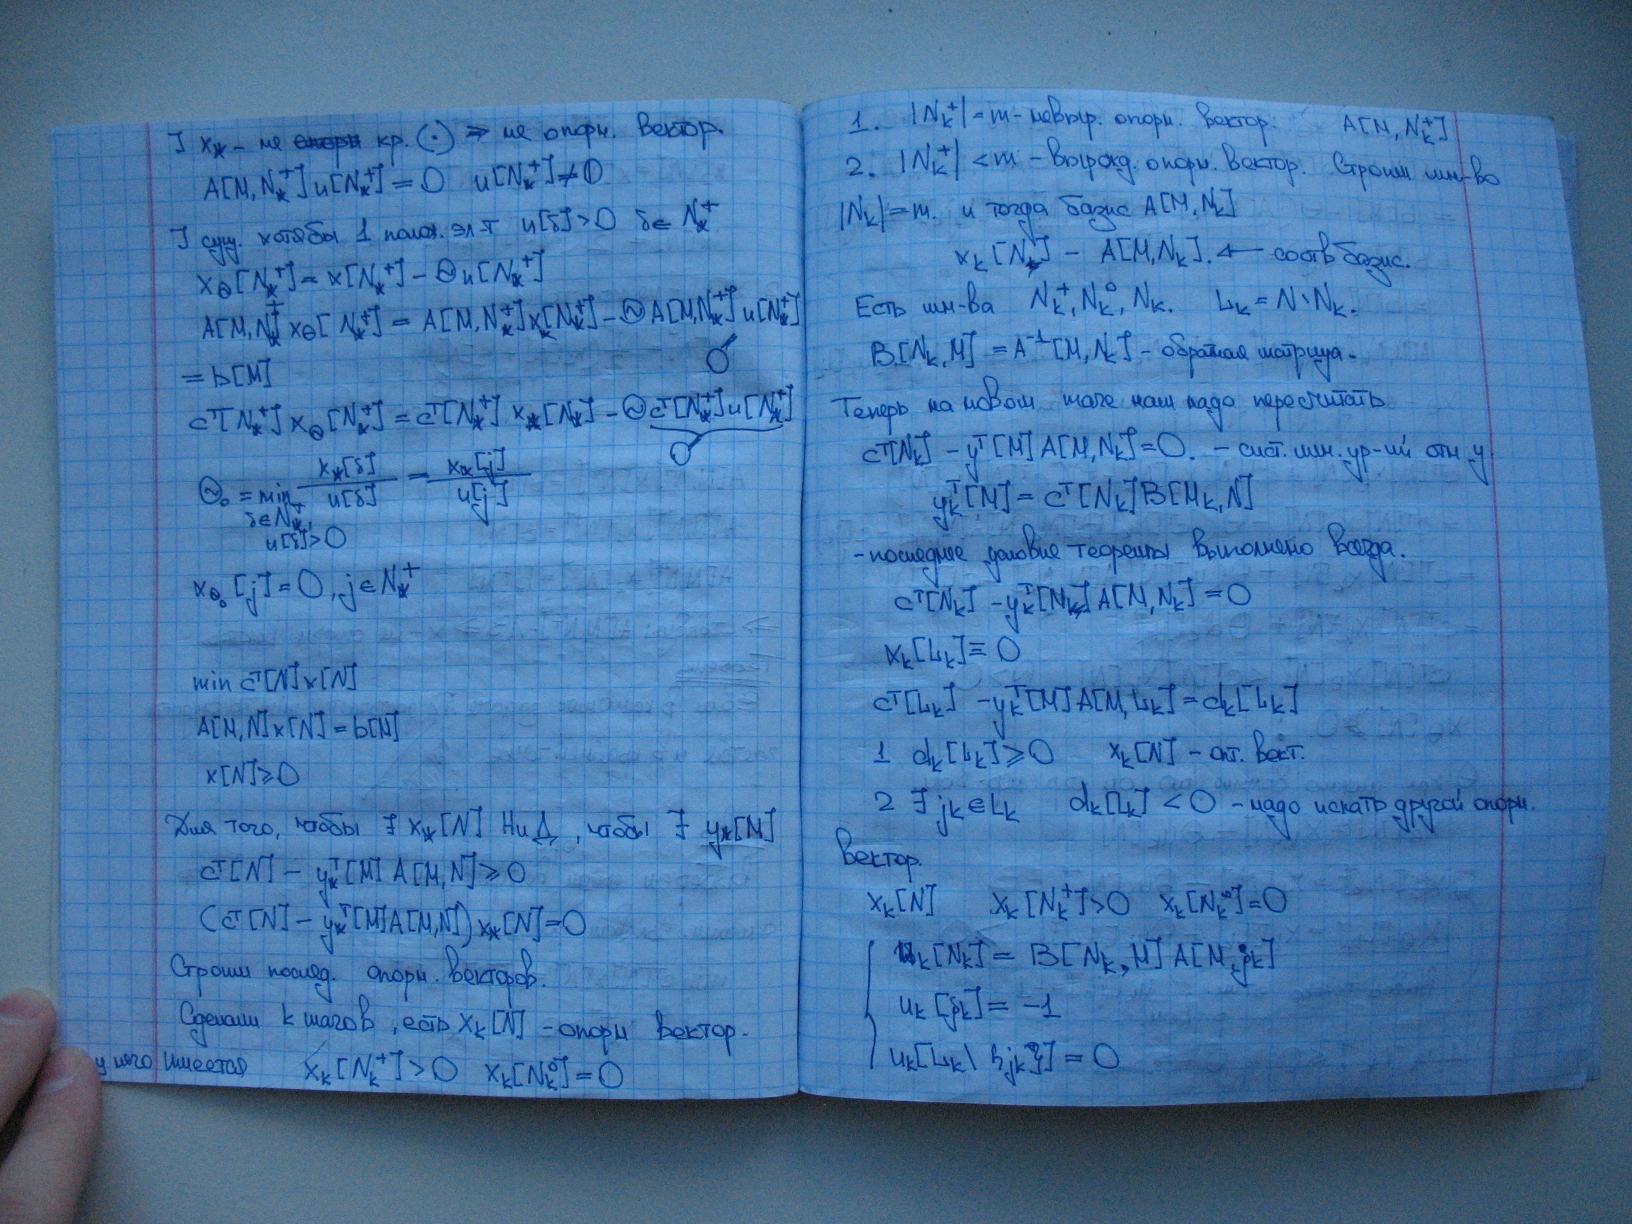 ] x⁎ – не кр. (·) ⇒ не опорн. вектор.
A[M,N⁎⁺]u[N⁎⁺]=0 u[N⁎⁺]≠0
] сущ. хотябы 1 полож. эл-т u[δ]>0 δ∈N⁎⁺
x_Θ[N⁎⁺]=x[N⁎⁺]–Θu[N⁎⁺]
A[M,N⁎⁺]x_Θ[N⁎⁺] = A[M,N⁎⁺]x⁎[N⁎⁺]–ΘA[M,N⁎⁺]u[N⁎⁺]
0
= b[M]
cᵀ[N⁎⁺]x_Θ[N⁎⁺]=cᵀ[N⁎⁺]x⁎[N⁎⁺]–Θcᵀ[N⁎⁺]u[N⁎⁺]
0
Θ₀ = min x⁎[δ]/u[δ] = x⁎[j]/u[j]
δ∈N⁎⁺,
u[δ]>0
x_Θ₀[j]=0, j∈N⁎⁺
min cᵀ[N]x[N]
A[M,N]x[N]=b[M]
x[N]≥0
Для того, чтобы ∃ x⁎[N] НиД, чтобы ∃ y⁎[M]
cᵀ[N] – y⁎ᵀ[M]A[M,N]≥0
(cᵀ[N]–y⁎ᵀ[M]A[M,N])x⁎[N]=0
Строим послед. опорн. векторов.
Сделали k шагов, есть x_k[N] – опорн вектор.
у него имеется x_k[N_k⁺]>0 x_k[N_k⁰]=0
1. |N_k⁺|=m – невыр. опорн. вектор. A[M,N_k⁺]
2. |N_k⁺|<m – вырожд. опорн. вектор. Строим мн-во
|N_k|=m. и тогда базис A[M,N_k]
x_k[N_k] – A[M,N_k]. ← соотв базис.
Есть мн-ва N_k⁺, N_k⁰, N_k. L_k = N∖N_k.
B[N_k,M] = A⁻¹[M,N_k] – обратная матрица.
Теперь на новом шаге нам надо пересчитать
cᵀ[N_k] – yᵀ[M]A[M,N_k]=0. – сист. лин. ур-ий отн y
y_kᵀ[M] = cᵀ[N_k]B[M_k,N]
– последнее условие теоремы выполнено всегда.
cᵀ[N_k] – y_kᵀ[N_k]A[M,N_k]=0
x_k[L_k]≡0
cᵀ[L_k] – y_kᵀ[M]A[M,L_k]=d_k[L_k]
1 d_k[L_k]≥0 x_k[N] – опт. вект.
2 ∃ j_k∈L_k d_k[L_k]<0 – надо искать другой опорн.
вектор.
x_k[N] x_k[N_k⁺]>0 x_k[N_k⁰]=0
u_k[N_k] = B[N_k,M]A[M,j_k]
u_k[j_k] = –1
u_k[L_k∖{j_k}] = 0